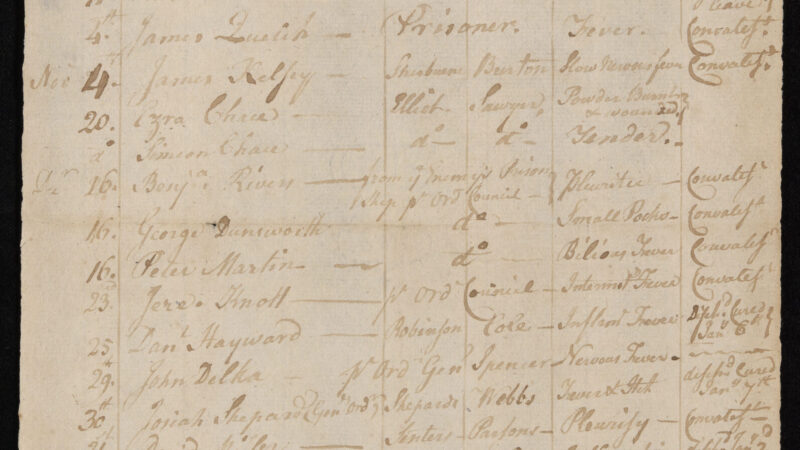 Leave
4th James Quelch — Prisoner. Fever. Convalest.
Novr 4th James Kelsey — Sherburne Burton Slow Nervous fever Convalest.
20. Ezra Chace — Elliot Sawyer, Powder Burnt & wounded,
do Simeon Chace — do do Tender.
Decr 16. Benja. Rivers — from ye Enemys Prison Ship pr Ordr Council — Pleuritic — Convalest.
16. George Dunsworth do — Small Pocks — Convalest.
16. Peter Martin — do — Bilious Fever Convalest.
23d Jere. Knott — pr Ordr Council — Intermt. Fever Convalest.
25 Danl. Hayward — Robinson Cole — Inflamy. Fever — Cured Jany 6th
29. John Delka — pr Ordr Genl Spencer — Nervous Fever —
30th Josiah Shepard (Genl Ordr) Shepards Webbs Fever & Itch Cured Jany 7th
Parsons — Pleurisy — Convalest.